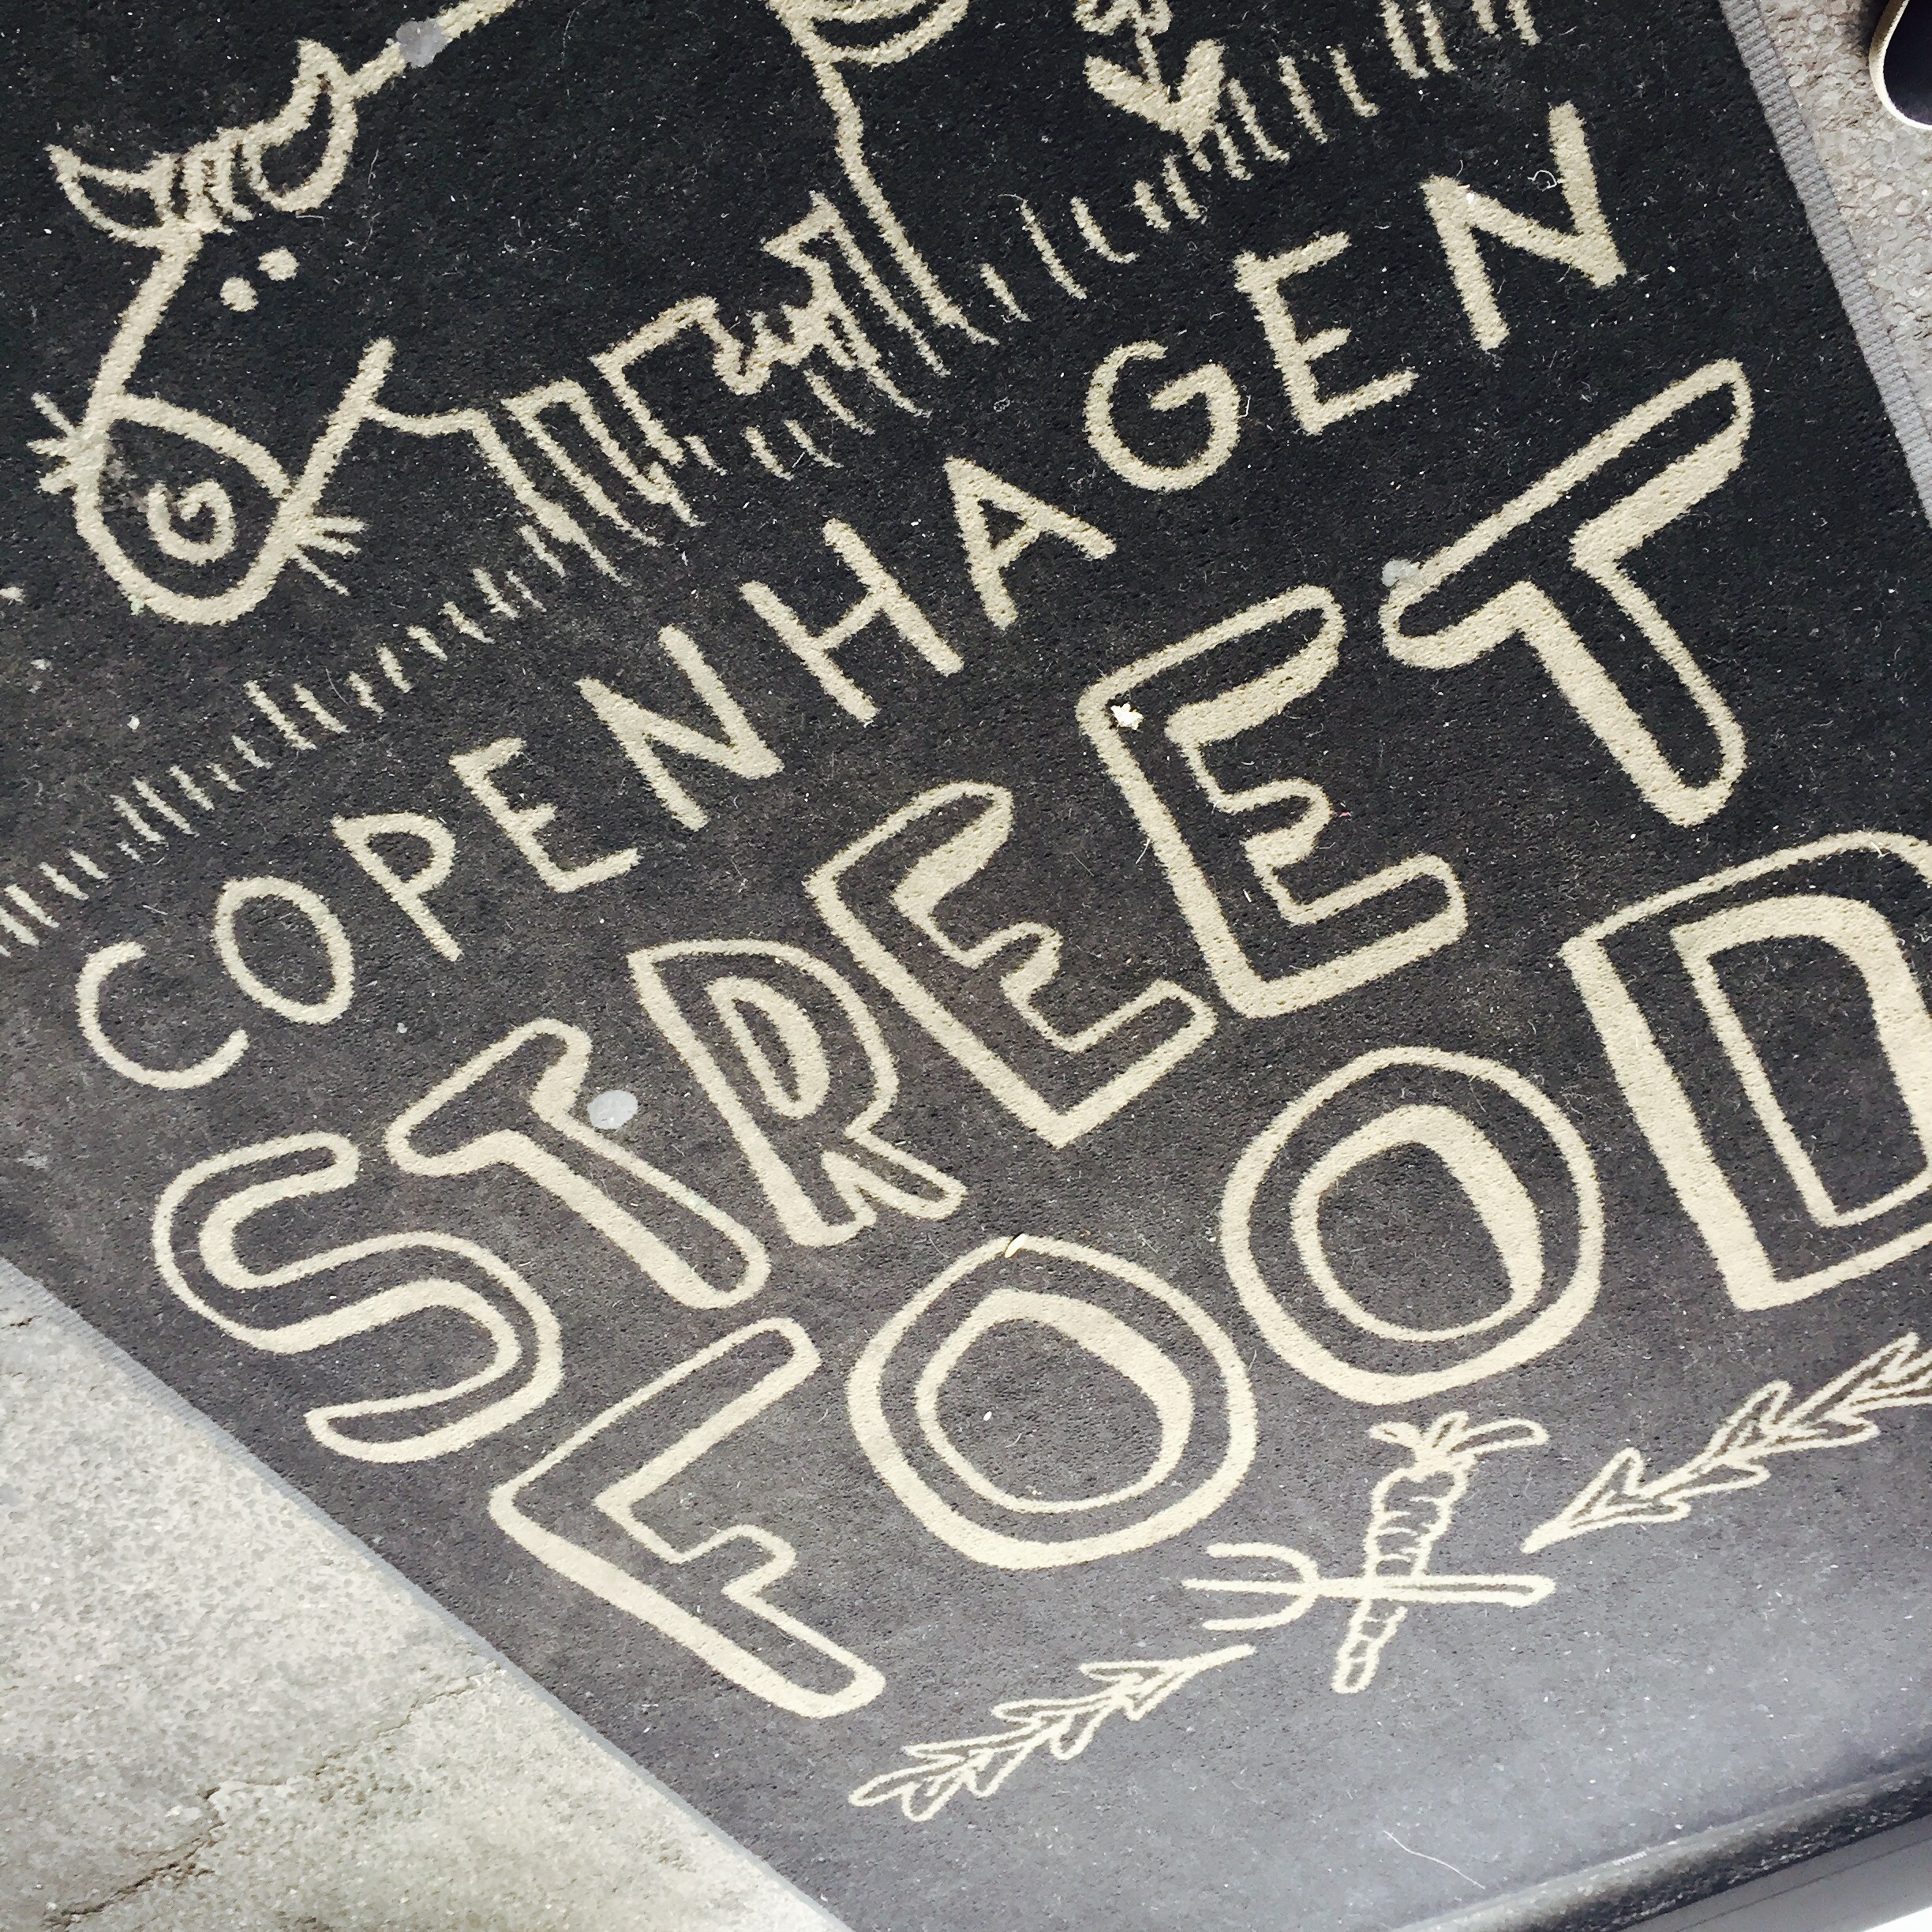 COPENHAGEN
STREET
FOOD